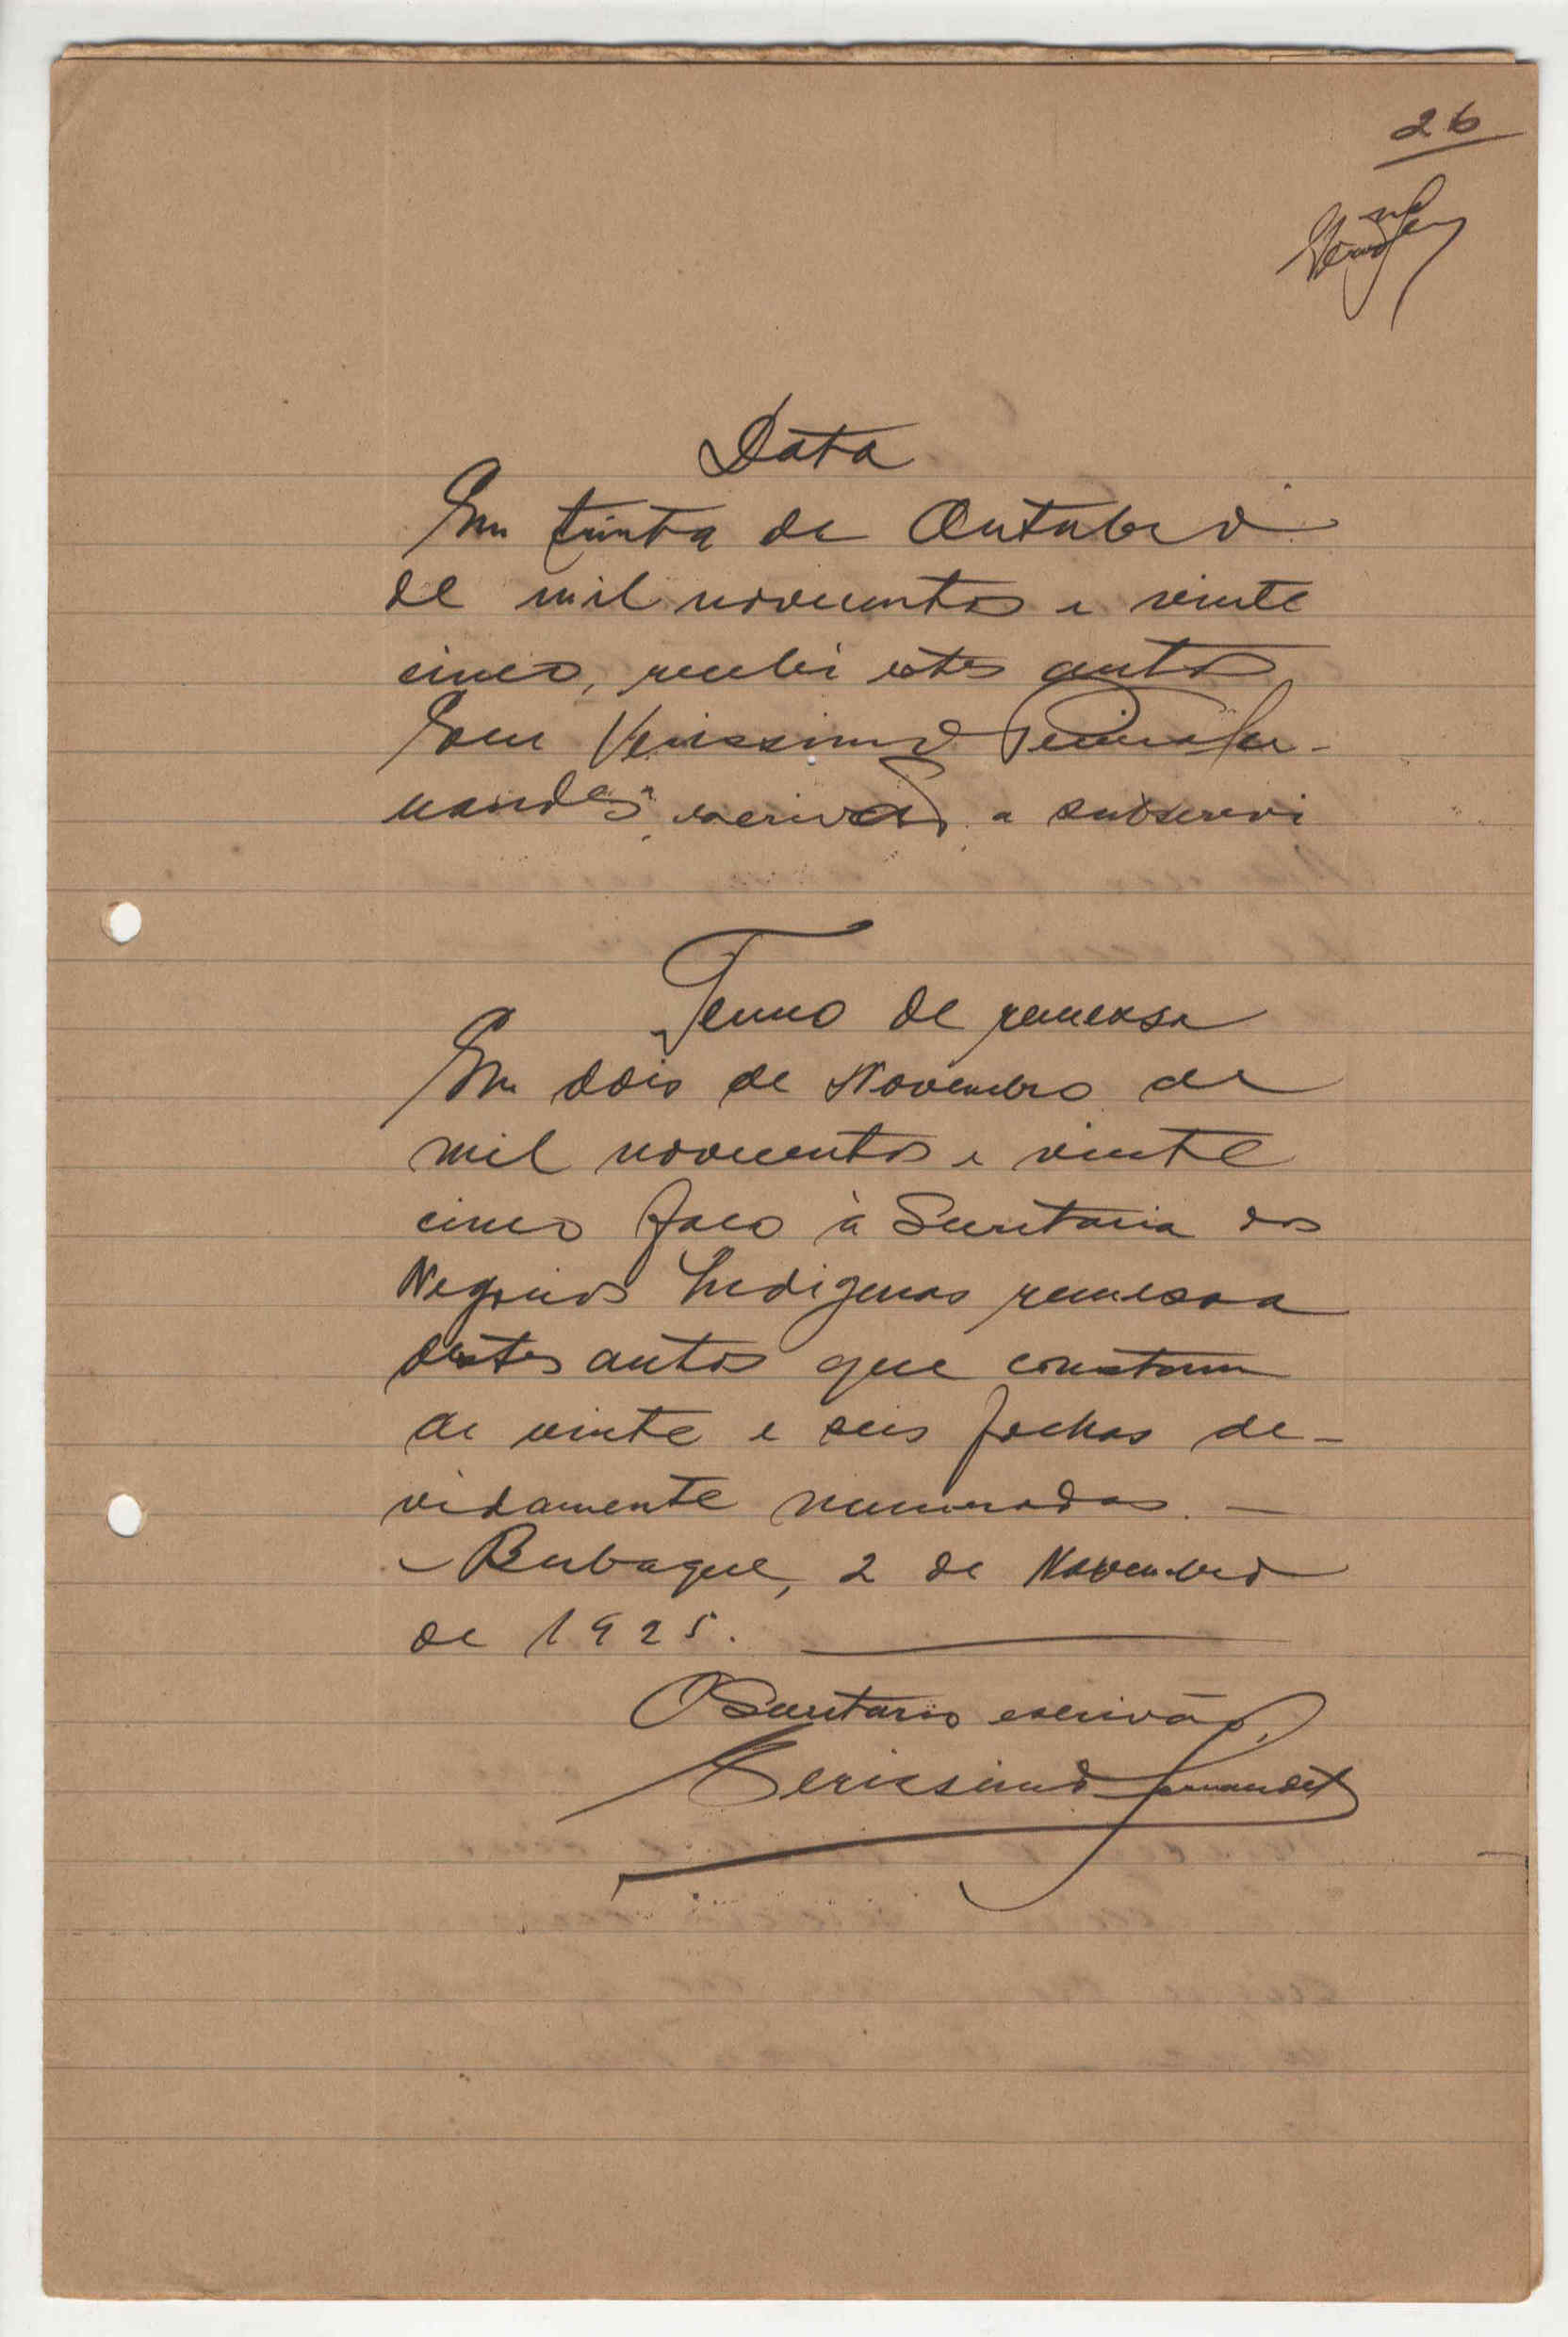 26
Data
Em trinta de Outubro
de mil novecentos e vinte
cinco, recebi estes autos
Eu Verissimo Pereira Fer-
nandes, escrivão, a subscrevi
Termo de remessa
Em dois de Novembro de
mil novecentos e vinte
cinco faco à Secretaria dos
Negocios Indigenas remessa
destes autos que constam
de vinte e seis fochas de-
vidamente numeradas. —
– Bubaque, 2 de Novembro
de 1925. —
O Secretario escrivão,
Verissimo Fernandes